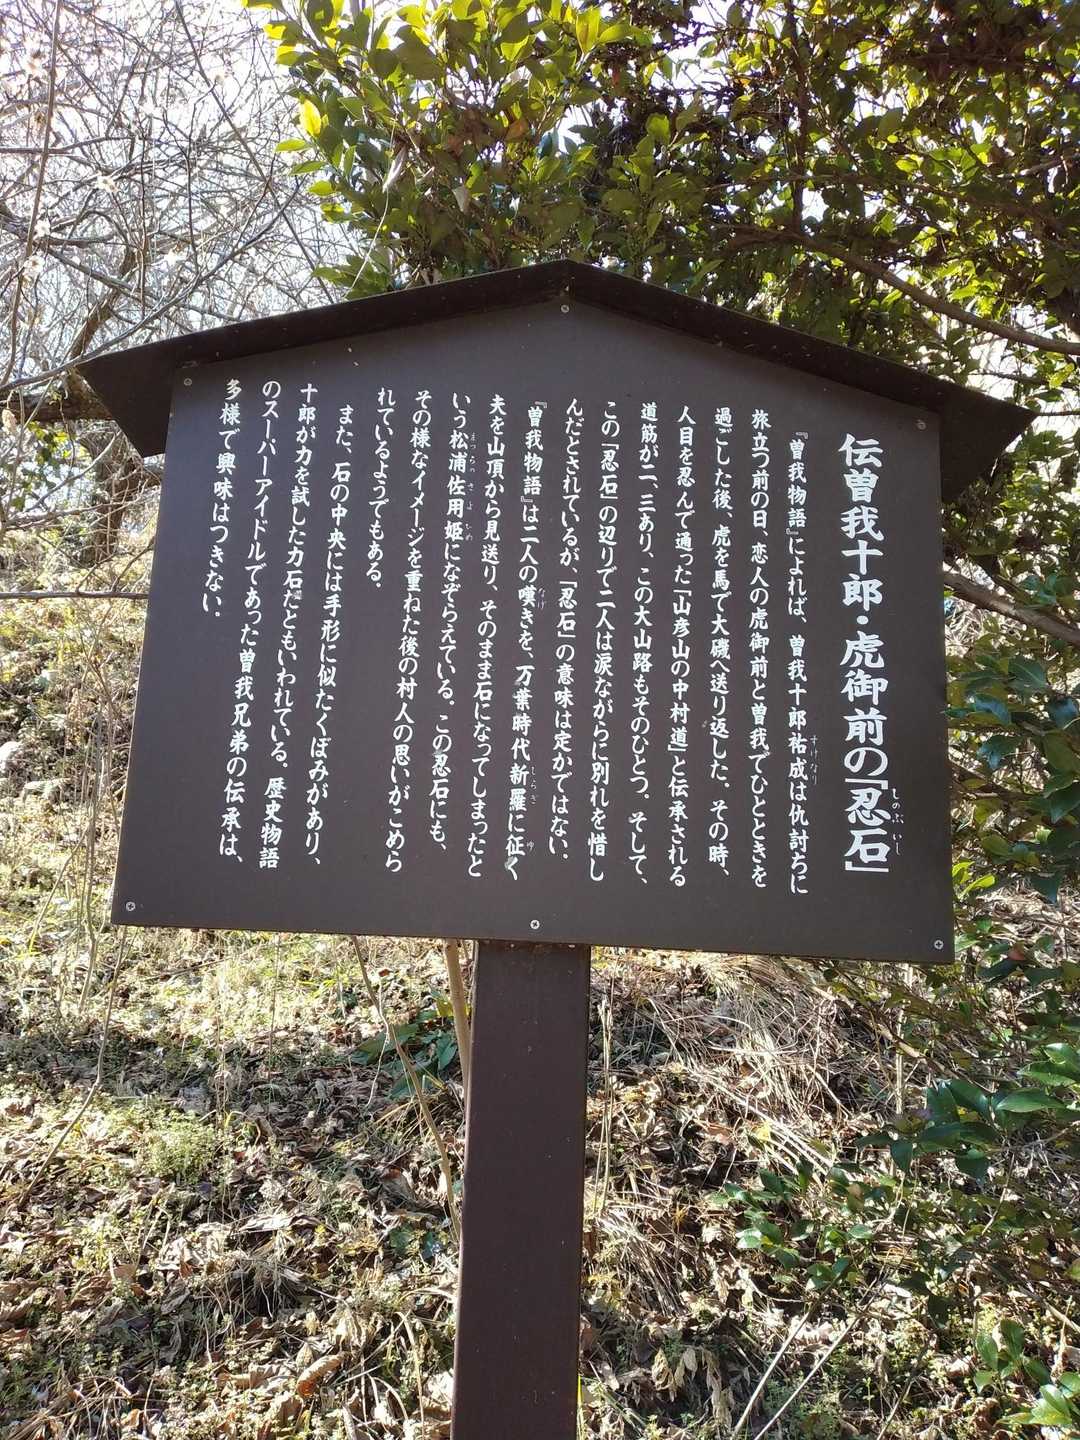 伝曽我十郎・虎御前の「忍石」
しのぶいし
『曽我物語』によれば、曽我十郎祐成は仇討ちに
すけなり
旅立つ前の日、恋人の虎御前と曽我でひとときを
過ごした後、虎を馬で大磯へ送り返した。その時、
人目を忍んで通った「山彦山の中村道」と伝承される
道筋が二、三あり、この大山路もそのひとつ。そして、
この「忍石」の辺りで二人は涙ながらに別れを惜し
んだとされているが、「忍石」の意味は定かではない。
『曽我物語』は二人の嘆きを、万葉時代新羅に征く
なげ しらぎ ゆ
夫を山頂から見送り、そのまま石になってしまったと
いう松浦佐用姫になぞらえている。この忍石にも、
まつらの さ よ ひめ
その様なイメージを重ねた後の村人の思いがこめら
れているようでもある。
また、石の中央には手形に似たくぼみがあり、
十郎が力を試した力石だともいわれている。歴史物語
のスーパーアイドルであった曽我兄弟の伝承は、
多様で興味はつきない。